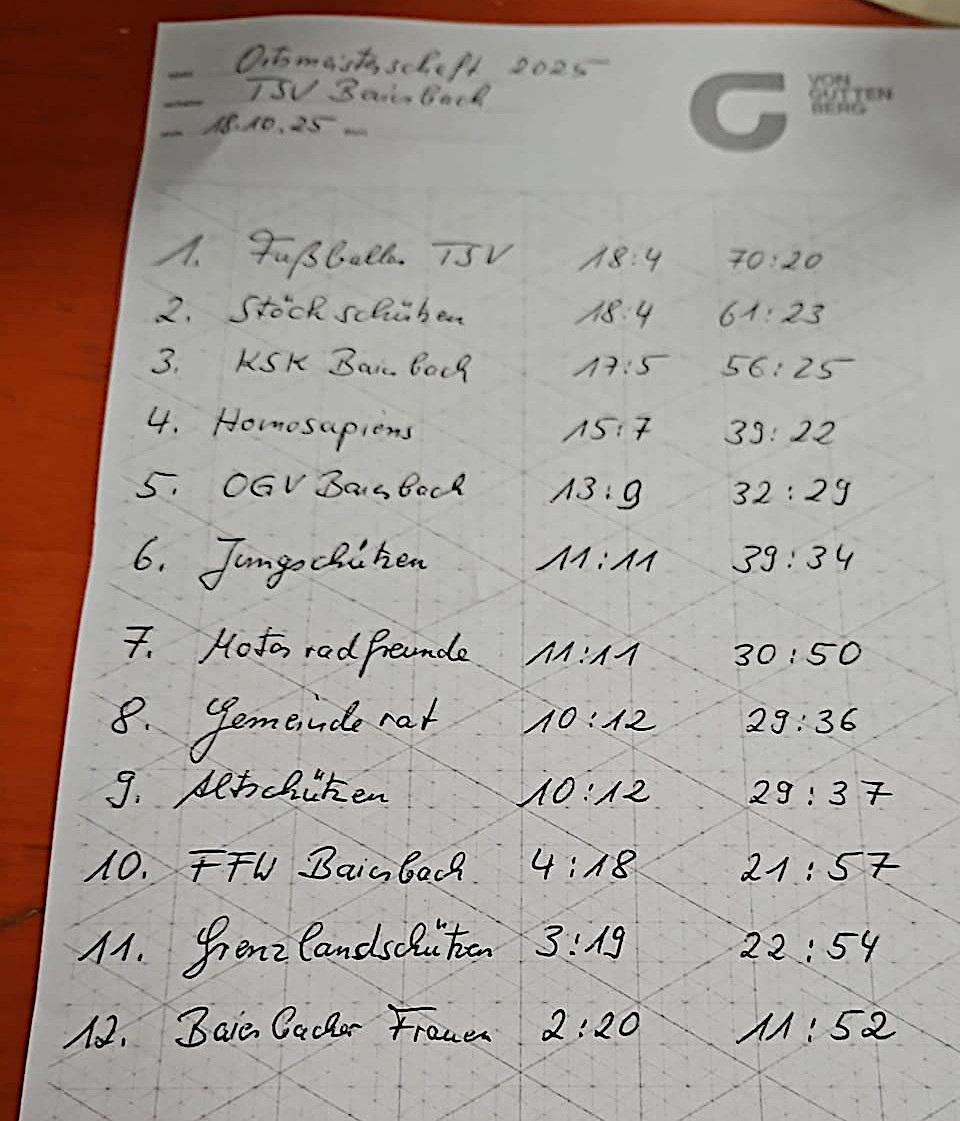 Ortsmeisterschaft 2025
TSV Baierbach
18.10.25
VON
GUTTEN
BERG
1. Fußballer TSV 18:4 70:20
2. Stöckschützen 18:4 61:23
3. KSK Baierbach 17:5 56:25
4. Homosapiens 15:7 39:22
5. OGV Baierbach 13:9 32:29
6. Jungschützen 11:11 39:34
7. Motorradfreunde 11:11 30:50
8. Gemeinderat 10:12 29:36
9. Altschützen 10:12 29:37
10. FFW Baierbach 4:18 21:57
11. Grenzlandschützen 3:19 22:54
12. Baierbacher Frauen 2:20 11:52